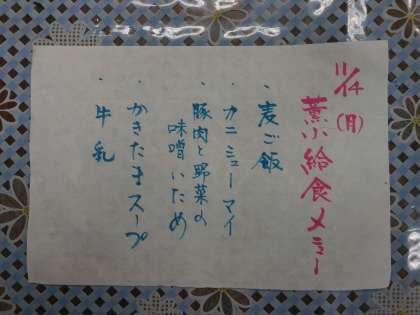 11/14(月)
薫小給食メニュー
・麦ご飯
・カニシューマイ
・豚肉と野菜の
味噌いため
・かきたまスープ
・牛乳